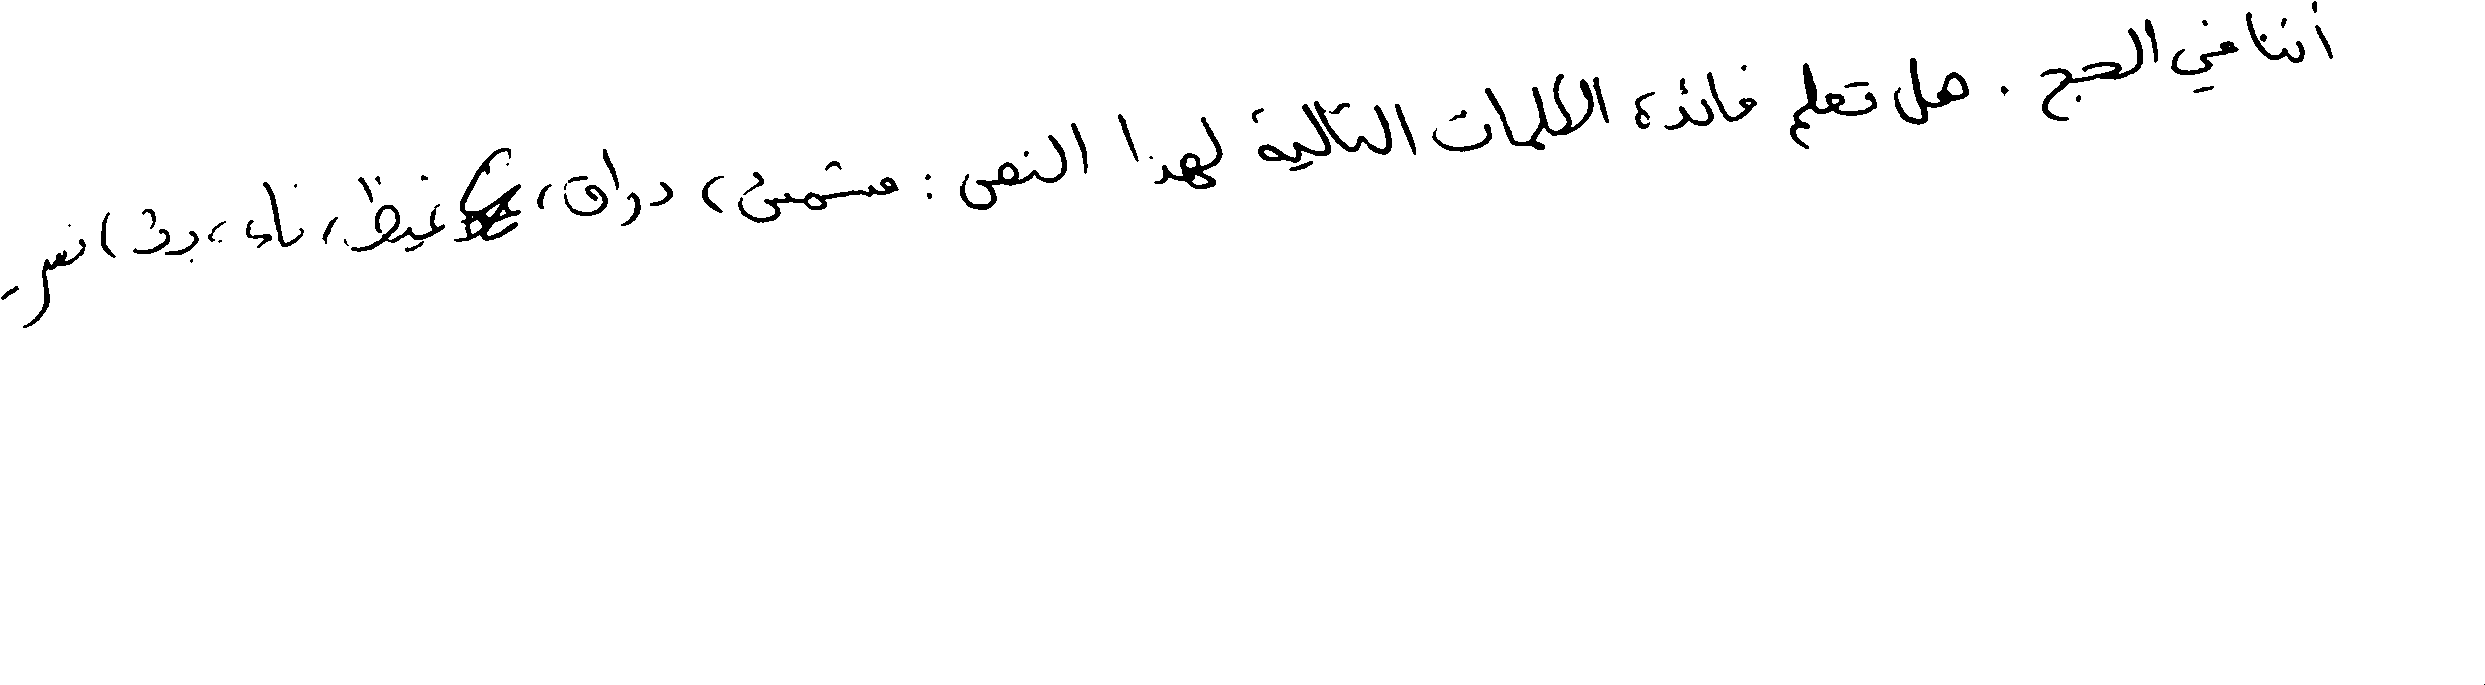 أننا في الحج . هل تعلم فائدة الكلمات التالية لهذا النص : مشمش ، دراق ، غيظ ، ناء ،